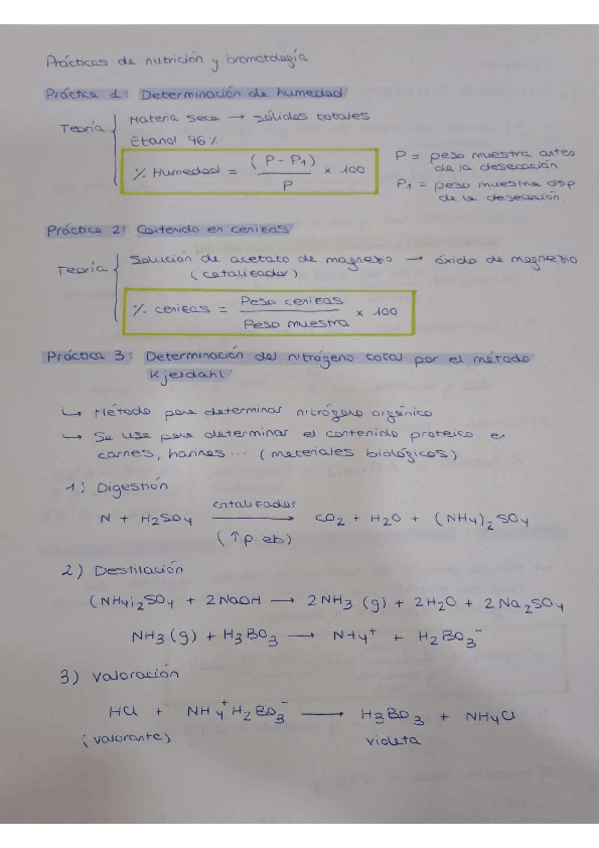 Prácticas de nutrición y bromatología
Práctica 1: Determinación de humedad
Teoría { Materia seca → sólidos totales
Etanol 96%
% Humedad = (P - P1) / P × 100
P = peso muestra antes de la desecación
P1 = peso muestra dsp de la desecación
Práctica 2: Contenido en cenizas
Teoría { Solución de acetato de magnesio → óxido de magnesio
(catalizador)
% cenizas = Peso cenizas / Peso muestra × 100
Práctica 3: Determinación del nitrógeno total por el método
Kjeldahl
↳ Método para determinar nitrógeno orgánico
↳ Se usa para determinar el contenido proteico e
carnes, harinas... (materiales biológicos)
1) Digestión
N + H2SO4 —catalizador→ CO2 + H2O + (NH4)2SO4
(↑p. eb)
2) Destilación
(NH4)2SO4 + 2NaOH → 2NH3 (g) + 2H2O + 2Na2SO4
NH3 (g) + H3BO3 → NH4+ + H2BO3-
3) Valoración
HCl + NH4+H2BO3- → H3BO3 + NH4Cl
(valorante) violeta